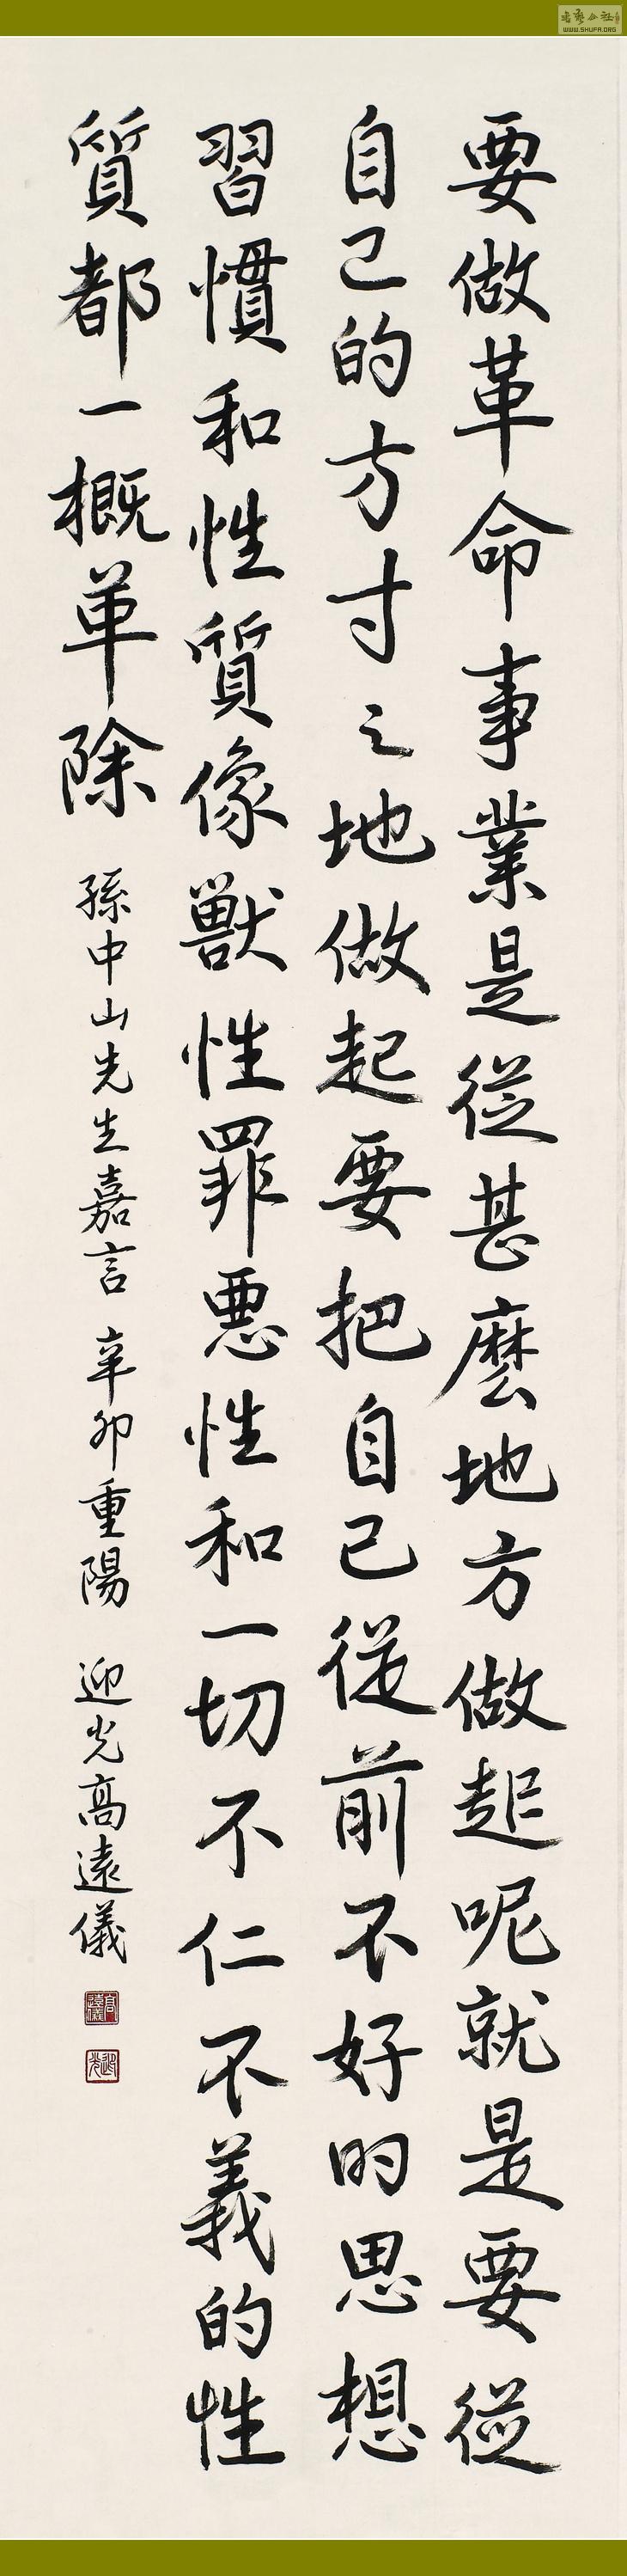 要做革命事業是從甚麼地方做起呢就是要從
自己的方寸之地做起要把自己從前不好的思想
習慣和性質像獸性罪惡性和一切不仁不義的性
質都一概革除
孫中山先生嘉言 辛卯重陽 迎光高遠儀
高遠儀
迎光
WWW.SHUFA.ORG